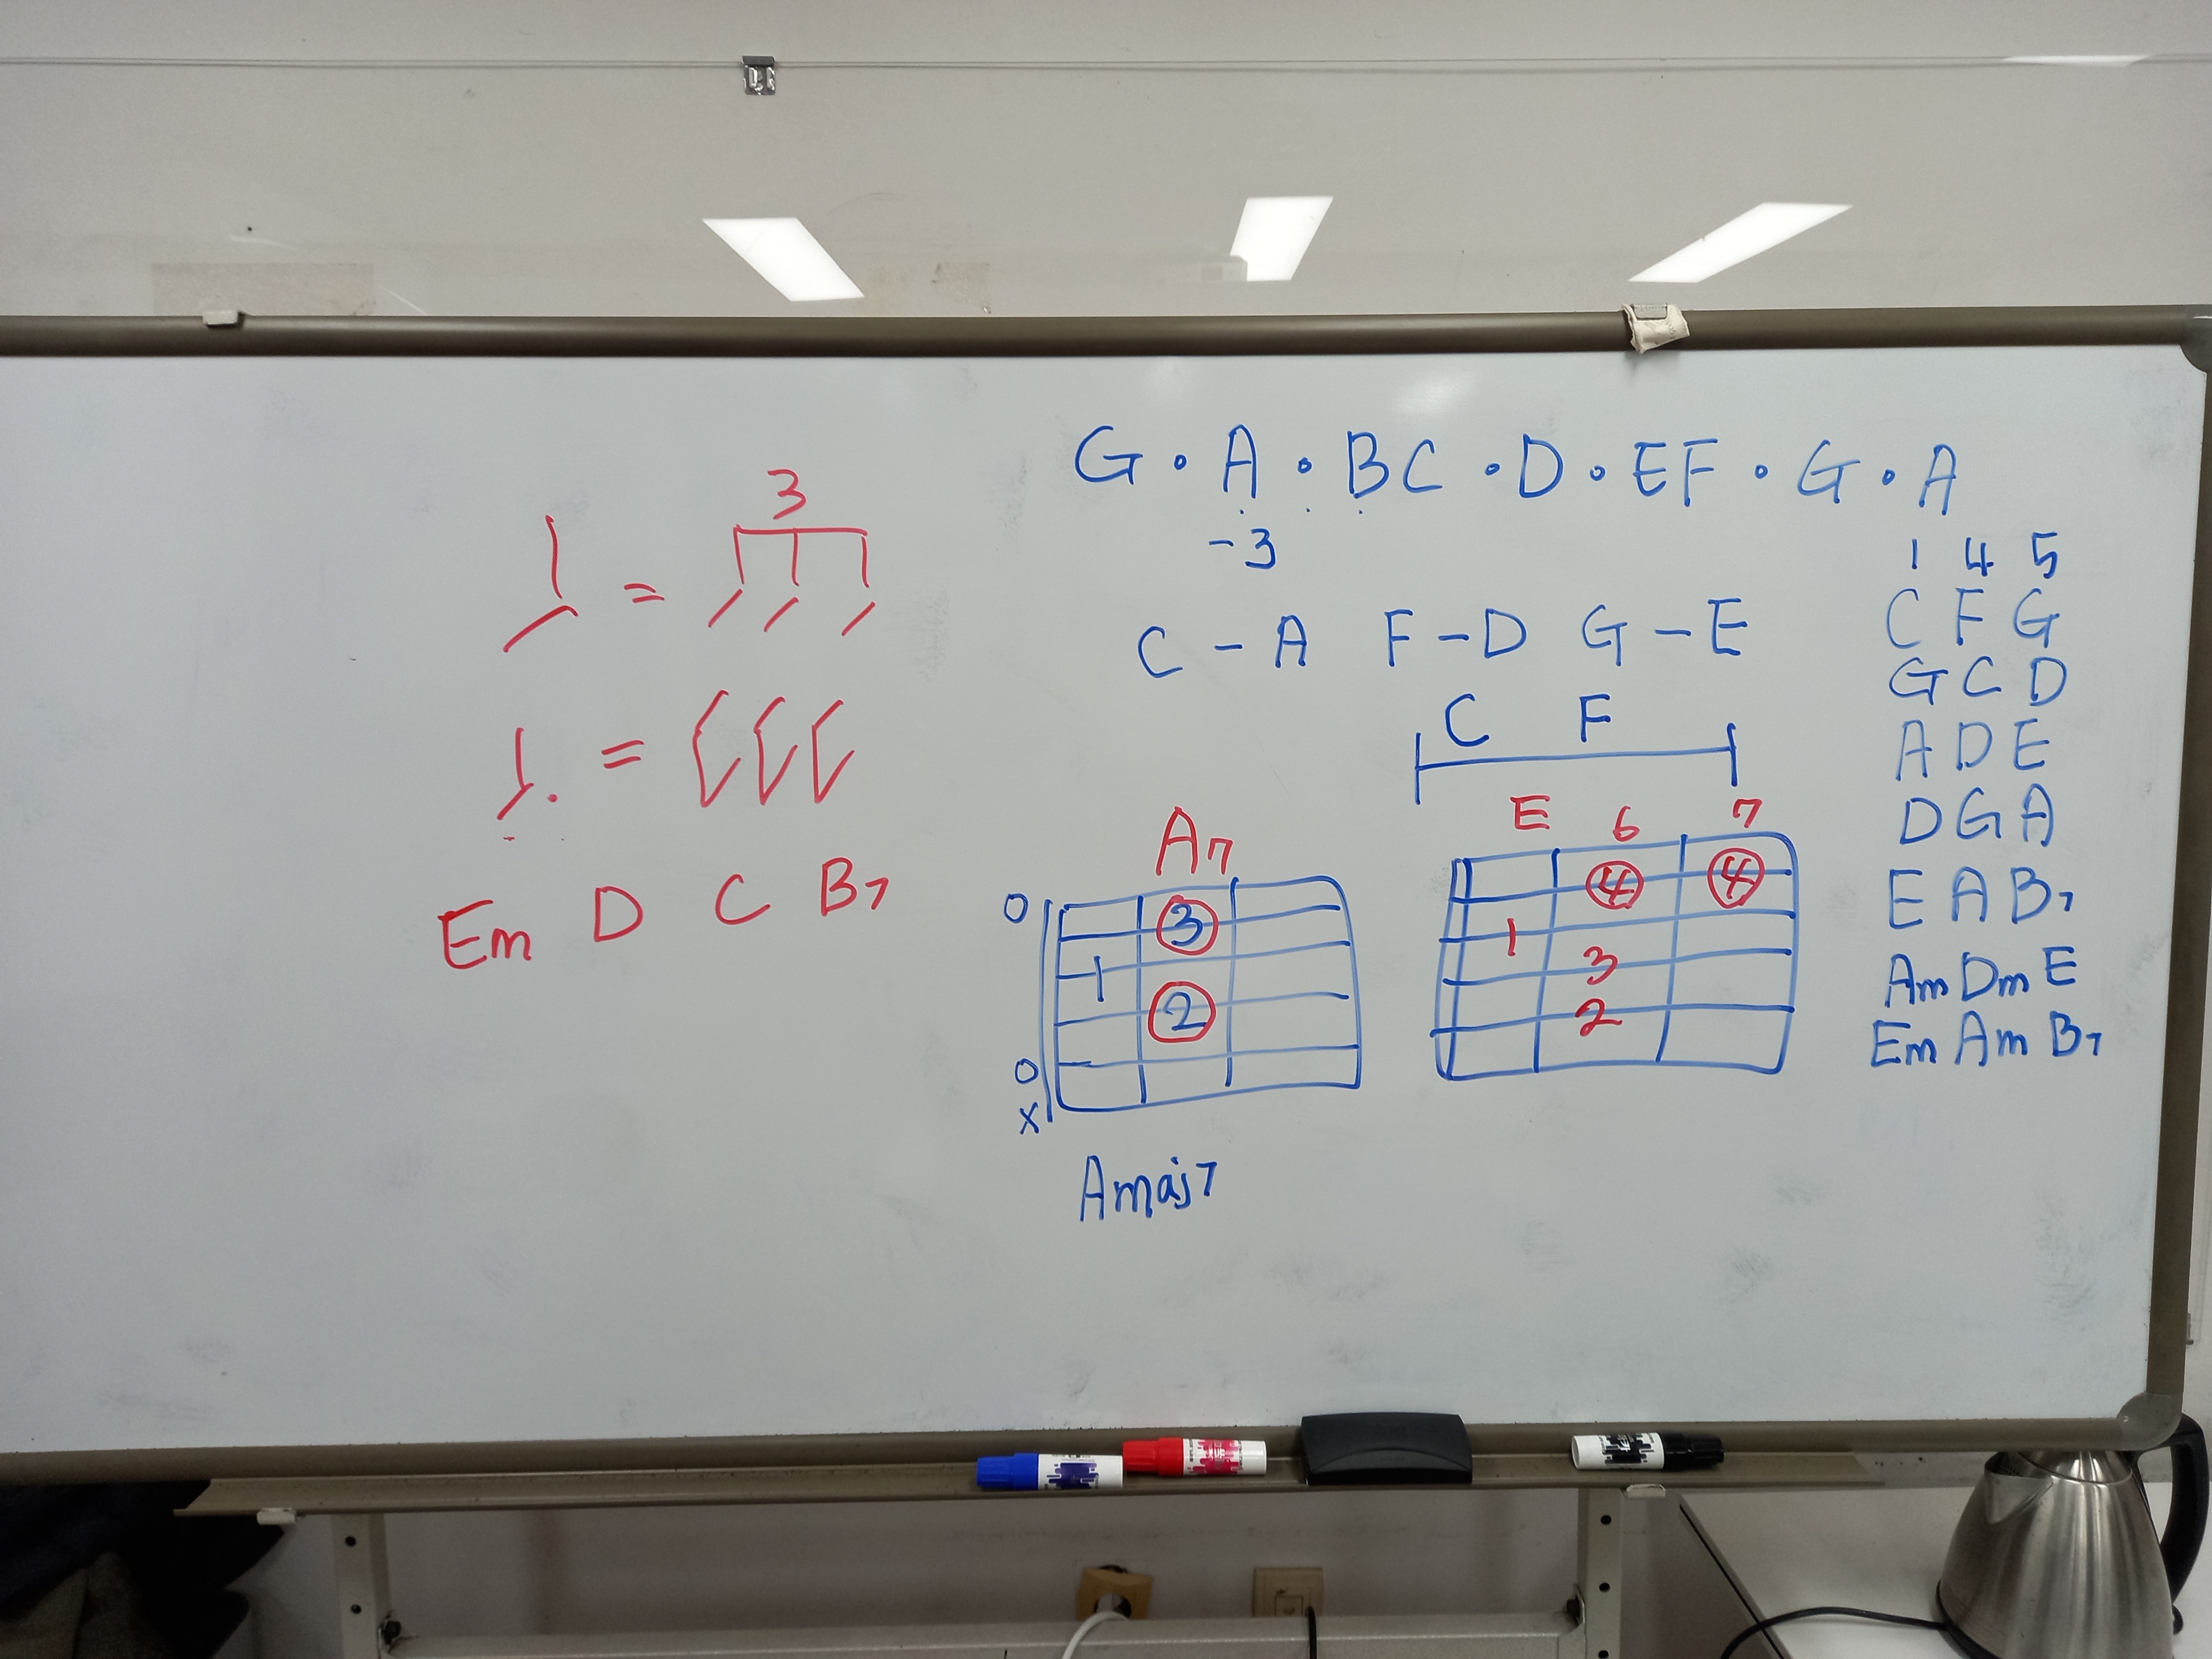 G · A · B C · D · E F · G · A
-3
C - A F - D G - E
C F
1 4 5
C F G
G C D
A D E
D G A
E A B7
Am Dm E
Em Am B7
3
=
=
Em D C B7
A7
O 3
1
2
O
X
Amaj7
E 6 7
4 4
1
3
2